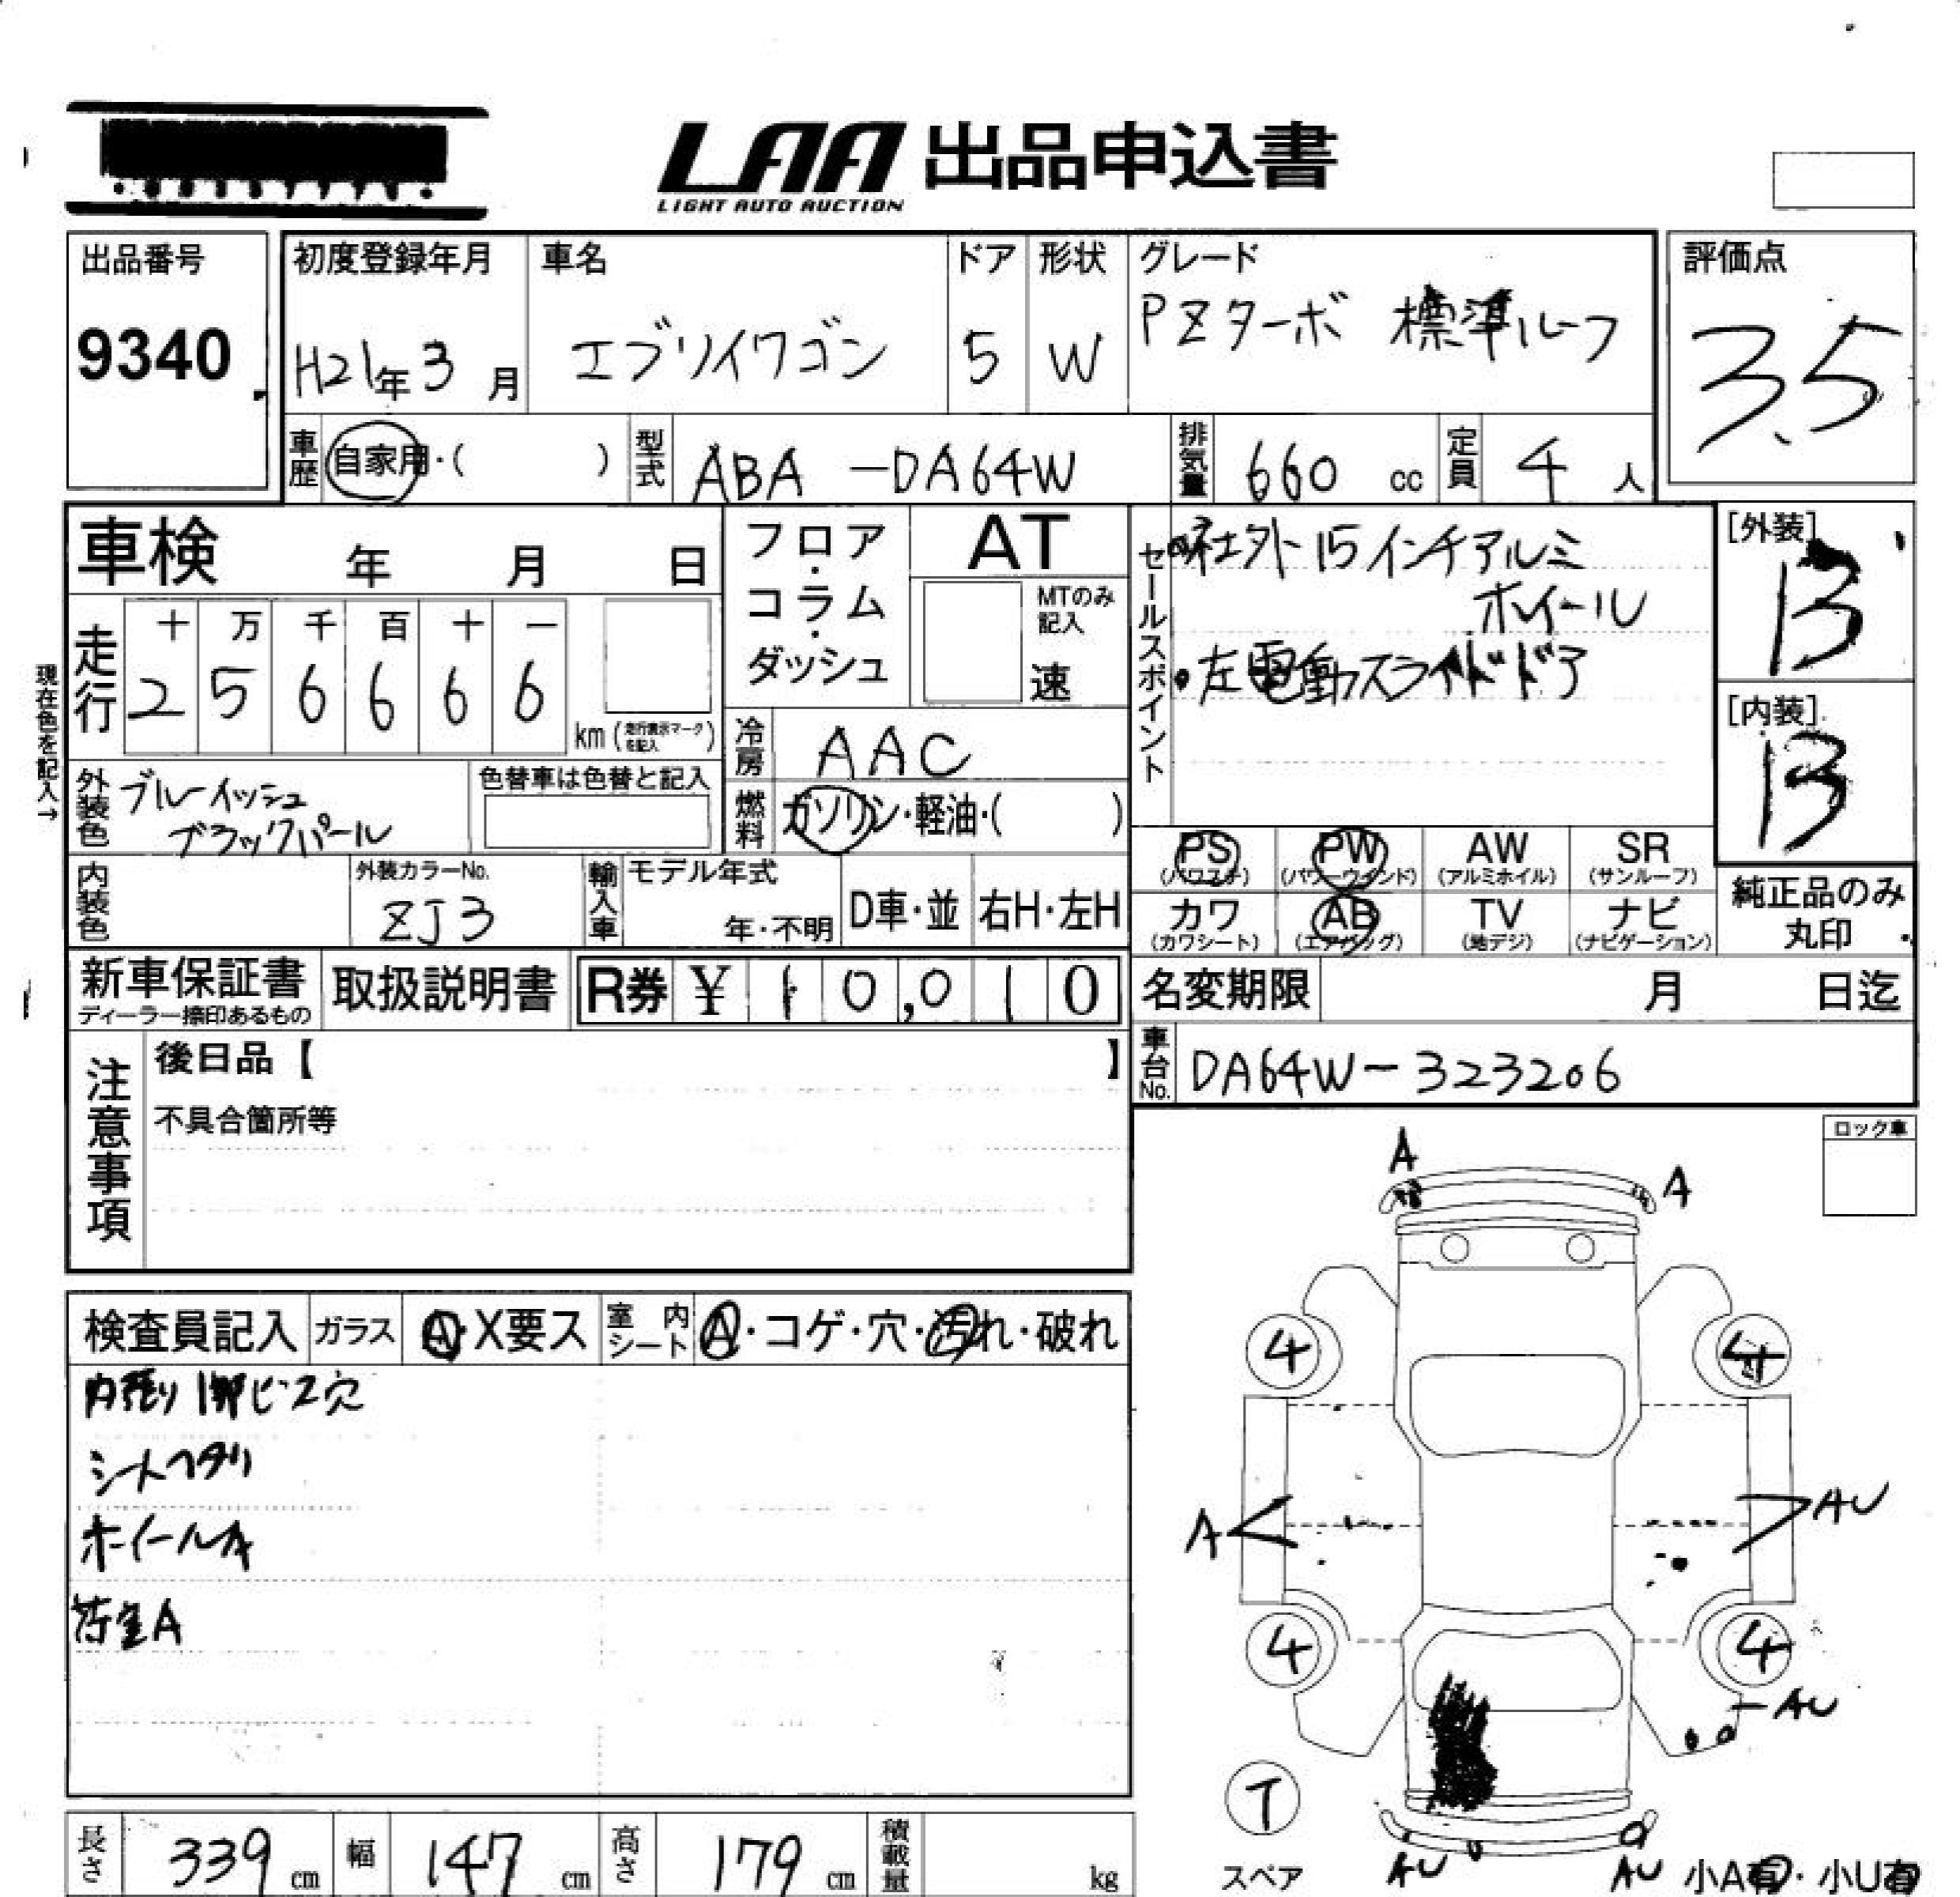 LAA 出品申込書
LIGHT AUTO AUCTION
出品番号
9340
初度登録年月
H21年 3月
車名
エブリイワゴン
ドア
5
形状
W
グレード
PZターボ 標準ルーフ
評価点
3.5
車歴 自家用・( )
型式 ABA-DA64W
排気量 660 cc
定員 4 人
車検 年 月 日
走行
十 万 千 百 十 一
2 5 6 6 6 6
km (走行表示マークを記入)
現在色を記入→
外装色 ブルーイッシュ
ブラックパール
色替車は色替と記入
内装色
外装カラーNo.
ZJ3
輸入車
モデル年式
年・不明
D車・並
右H・左H
フロア
・
コラム
・
ダッシュ
AT
MTのみ
記入
速
冷房 AAC
燃料 ガソリン・軽油・( )
セールスポイント
・社外15インチアルミ
ホイール
・左電動スライドドア
[外装]
B
[内装]
B
PS
(パワステ)
PW
(パワーウインド)
AW
(アルミホイル)
SR
(サンルーフ)
カワ
(カワシート)
AB
(エアバッグ)
TV
(地デジ)
ナビ
(ナビゲーション)
純正品のみ
丸印
新車保証書
ディーラー捺印あるもの
取扱説明書
R券 ¥ 10,010
名変期限 月 日迄
車台No. DA64W-323206
注意事項
後日品【 】
不具合箇所等
ロック車
検査員記入
ガラス A・X要ス
室内シート A・コゲ・穴・汚れ・破れ
内張り1部ビス穴
シートヘタリ
ホイールA
荷室A
A
A
4
4
A
AU
4
4
AU
T
スペア
AU
AU
小A有・小U有
長さ 339 cm
幅 147 cm
高さ 179 cm
積載量 kg